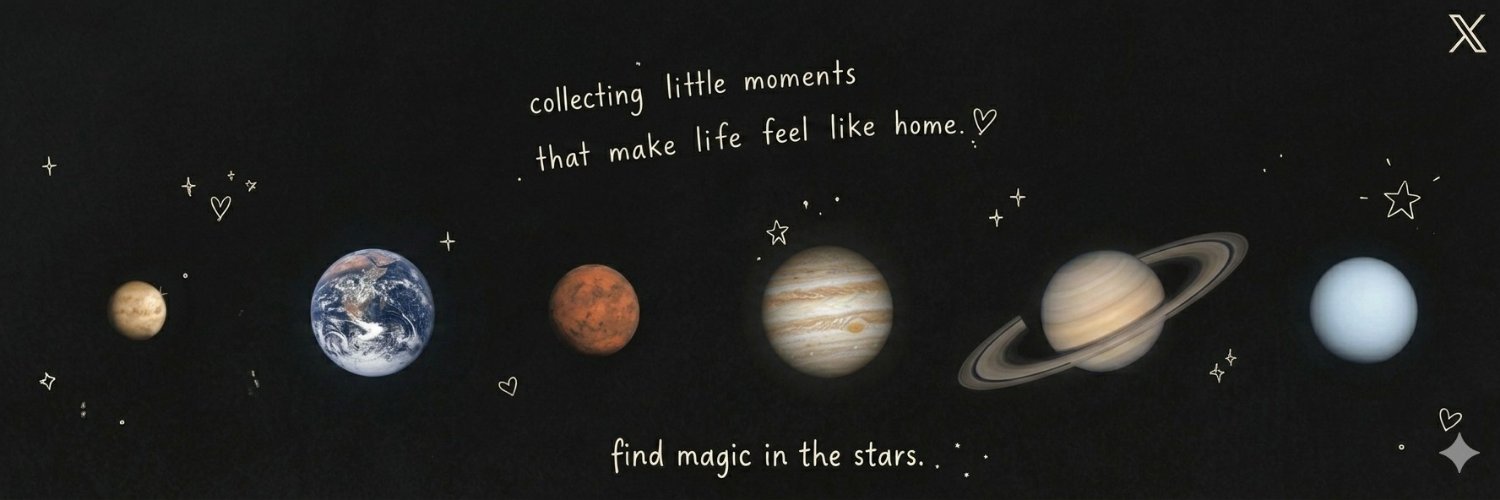 collecting little moments
that make life feel like home.
find magic in the stars.